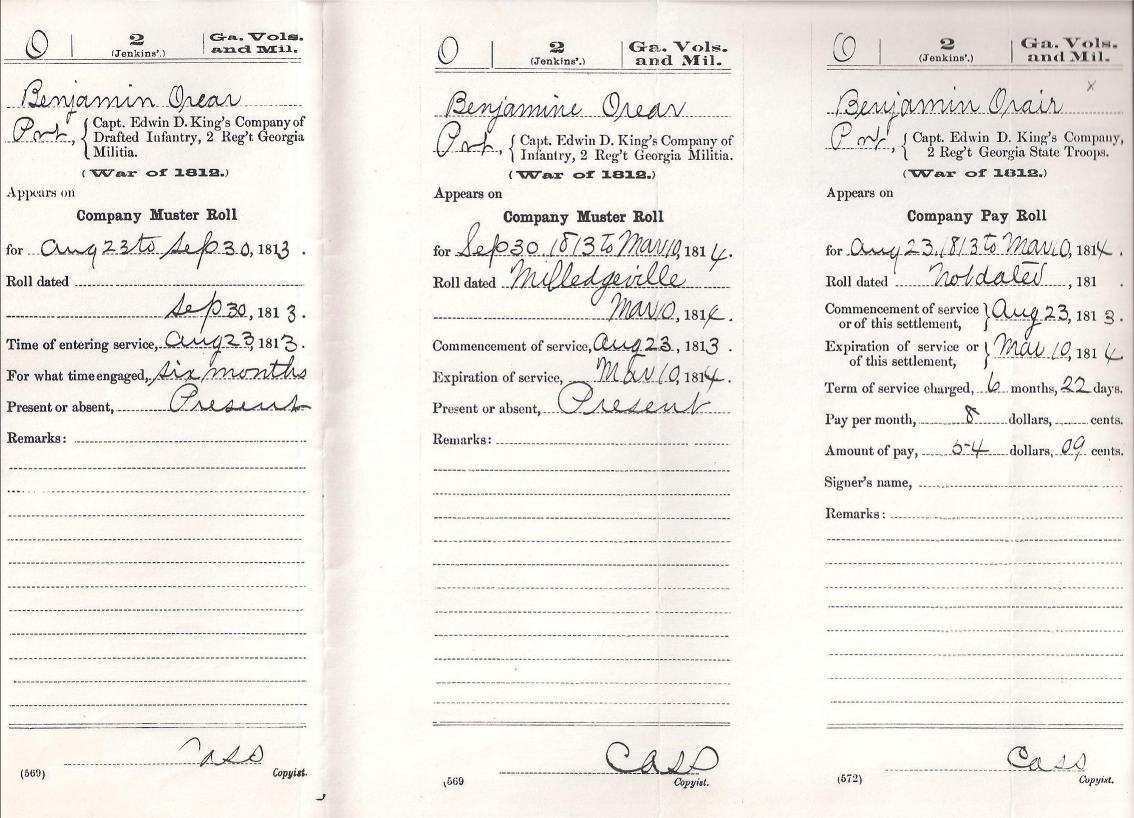 O 2 Ga. Vols.
(Jenkins'.) and Mil.
Benjamin Orear
Pvt., { Capt. Edwin D. King's Company of
Drafted Infantry, 2 Reg't Georgia
Militia.
(War of 1812.)
Appears on
Company Muster Roll
for Aug 23 to Sep 30, 1813.
Roll dated
Sep 30, 1813.
Time of entering service, Aug 23, 1813.
For what time engaged, six months
Present or absent, Present
Remarks:
Cass
(569) Copyist.
O 2 Ga. Vols.
(Jenkins'.) and Mil.
Benjamine Orear
Pvt., { Capt. Edwin D. King's Company of
Infantry, 2 Reg't Georgia Militia.
(War of 1812.)
Appears on
Company Muster Roll
for Sep 30, 1813 to Mar 10, 1814.
Roll dated Milledgeville
Mar 10, 1814.
Commencement of service, Aug 23, 1813.
Expiration of service, Mar 10, 1814.
Present or absent, Present
Remarks:
Cass
(569 Copyist.
O 2 Ga. Vols.
(Jenkins'.) and Mil.
x
Benjamin Orair
Pvt, { Capt. Edwin D. King's Company,
2 Reg't Georgia State Troops.
(War of 1812.)
Appears on
Company Pay Roll
for Aug 23, 1813 to Mar 10, 1814.
Roll dated Not dated, 181 .
Commencement of service } Aug 23, 1813.
or of this settlement,
Expiration of service or } Mar 10, 1814
of this settlement,
Term of service charged, 6 months, 22 days.
Pay per month, 8 dollars, cents.
Amount of pay, 54 dollars, 09 cents.
Signer's name,
Remarks:
Cass
(572) Copyist.